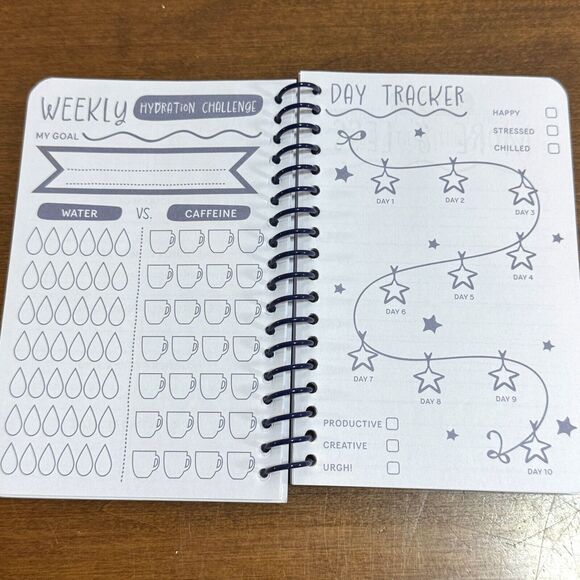 WEEKLY HYDRATION CHALLENGE
MY GOAL
WATER VS. CAFFEINE
DAY TRACKER
HAPPY
STRESSED
CHILLED
DAY 1
DAY 2
DAY 3
DAY 4
DAY 5
DAY 6
DAY 7
DAY 8
DAY 9
DAY 10
PRODUCTIVE
CREATIVE
URGH!